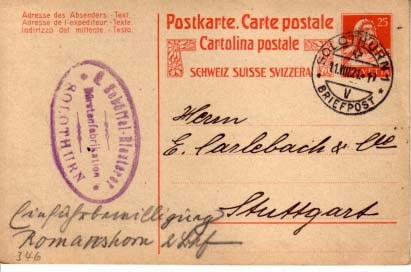 Adresse des Absenders - Text.
Adresse de l'expéditeur - Texte.
Indirizzo del mittente - Testo.
Postkarte. Carte postale
Cartolina postale
SCHWEIZ SUISSE SVIZZERA
25
HELVETIA
SOLOTHURN 1
V
BRIEFPOST
Bürstenfabrikation
SOLOTHURN
Herrn
E. Carlebach & Cie
Stuttgart
Einfuhrbewilligung
Romanshorn
346